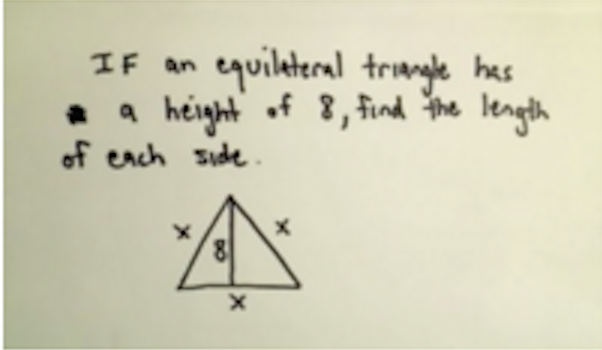 IF an equilateral triangle has
a height of 8, find the length
of each side.
x x
8
x